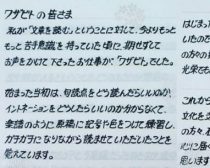 ワサビトの皆さま
私が「文章を読む」ということに対して、今よりもっと
もっと苦手意識を持っていた頃に、期せずして
お声をかけて下さったお仕事が「ワサビト」でした。
始まった当初は、句読点をどう読んだらいいのか、
イントネーションをどうしたらいいのか分からなくて、
楽譜のように原稿に記号や色をつけて練習し、
ガチガチになりながら読ませていただいたことを
覚えています。
はじまっ
いたのだ
の方々の
光栄でも
これか
文化と
の方々
心に届